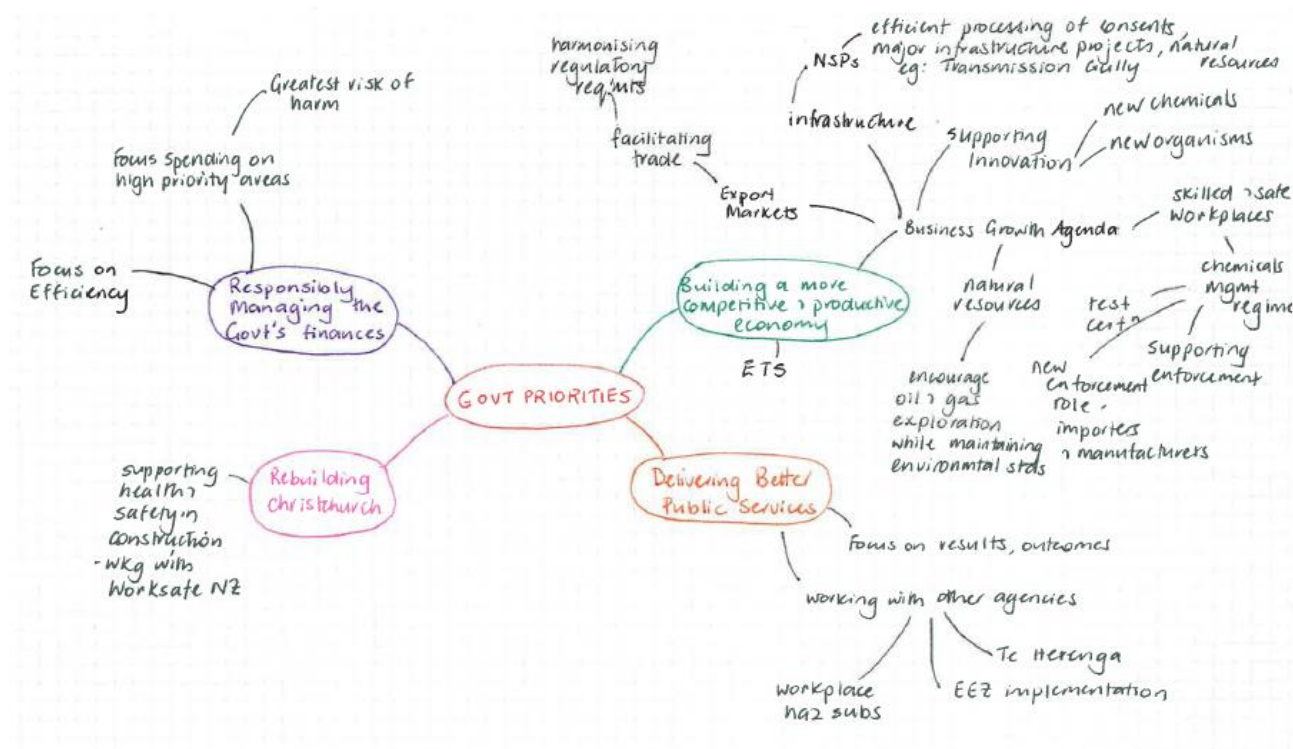 GOVT PRIORITIES
Responsibly
Managing the
Govt's finances
Focus spending on
high priority areas
Greatest risk of
harm
Focus on
Efficiency
Rebuilding
Christchurch
supporting
health &
safety in
construction
- wkg with
Worksafe NZ
Building a more
competitive & productive
economy
ETS
Business Growth Agenda
Export
Markets
facilitating
trade
harmonising
regulatory
reqmts
infrastructure
NSPs
efficient processing of consents,
major infrastructure projects, natural
resources
eg: Transmission Gully
supporting
Innovation
new chemicals
new organisms
skilled & safe
workplaces
chemicals
mgmt
regime
test
certn
new
enforcement
role -
importers
& manufacturers
supporting
enforcement
natural
resources
encourage
oil & gas
exploration
while maintaining
environmtal stds
Delivering Better
Public Services
Focus on results, outcomes
working with other agencies
workplace
haz subs
EEZ implementation
Te Herenga